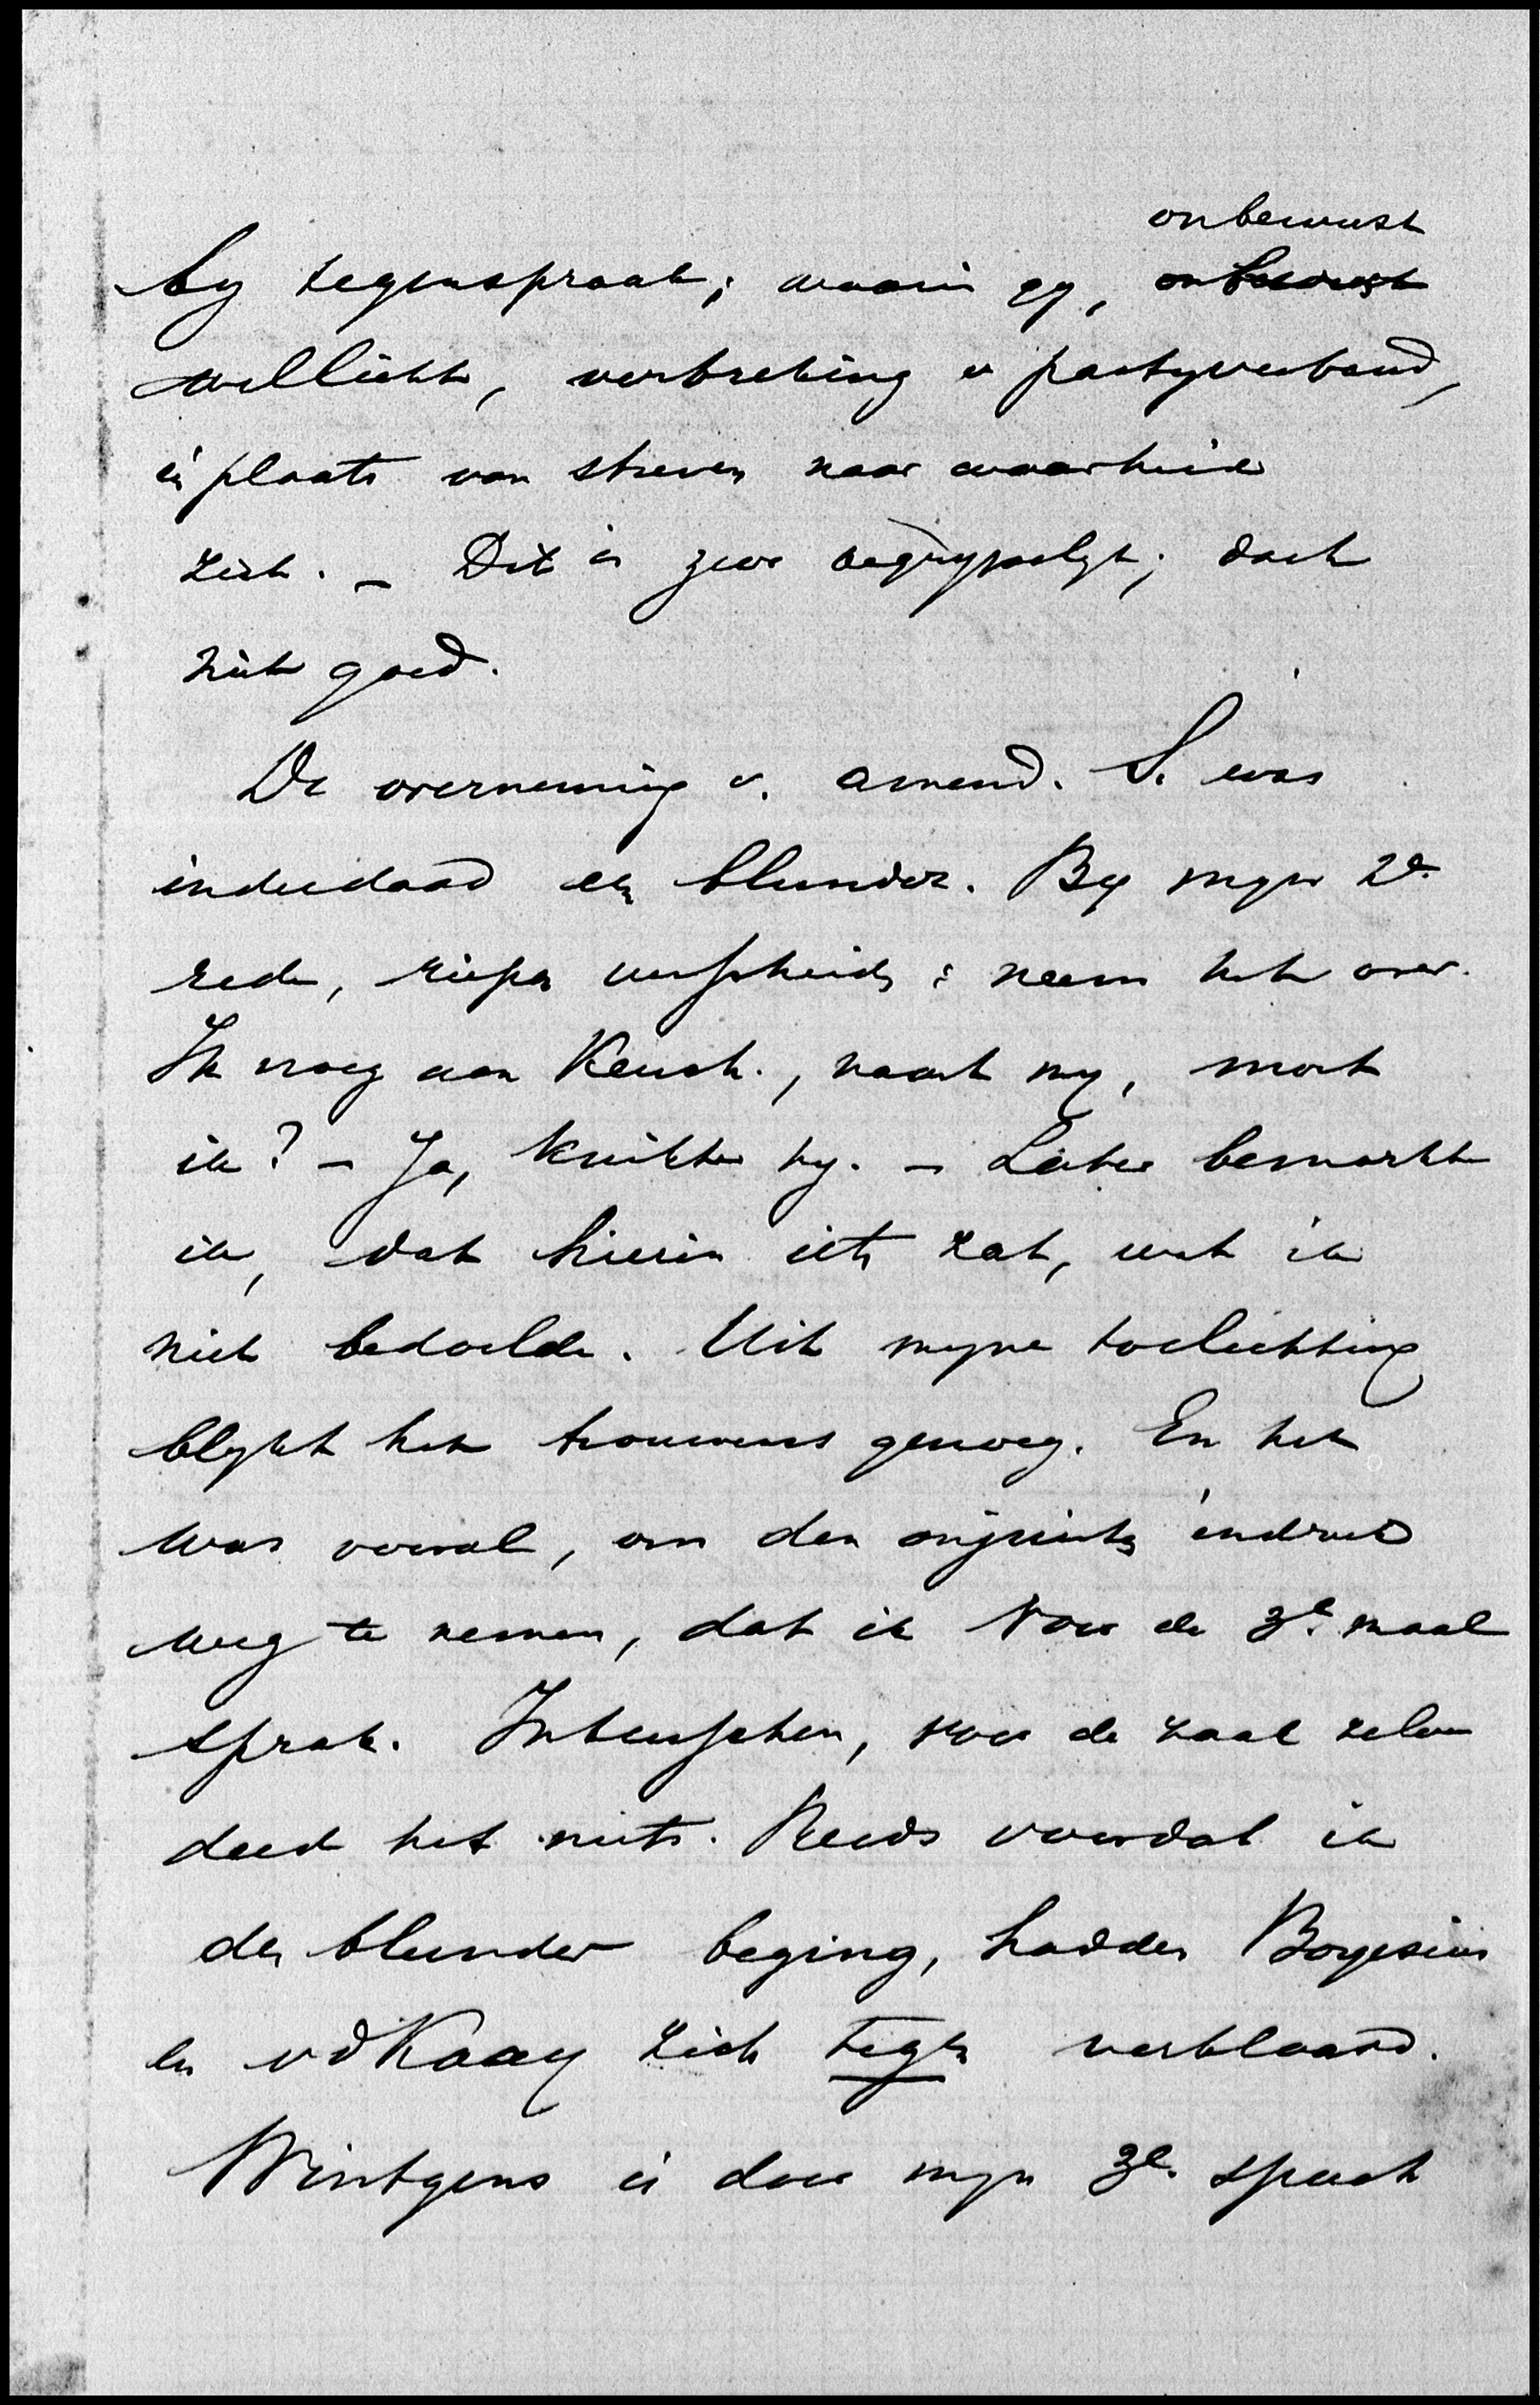 onbewust
by tegenspraak; waarin gy, onbewust
wellicht, verbreking v partyverband,
in plaats van streven naar waarheid
ziet. – Dit is zeer begrypelyk; doch
niet goed.
De overneming v. amend. S. was
inderdaad een blunder. By myn 2e.
rede, riepen verscheiden: neem het over.
Ik vroeg aan Keuch., naast my, moet
ik? – Ja, knikte hy. – Later bemerkte
ik, dat hierin iets zat, wat ik
niet bedoelde. Uit myne toelichting
blykt het trouwens genoeg. En het
was vooral, om den onjuisten indruk
weg te nemen, dat ik voor de 3e. maal
sprak. Intusschen, voor de zaak zelve
deed het niets. Reeds voordat ik
den blunder beging, hadden Borgesius
en vdKaay zich tegen verklaard.
Wintgens is door myn 3e. speech